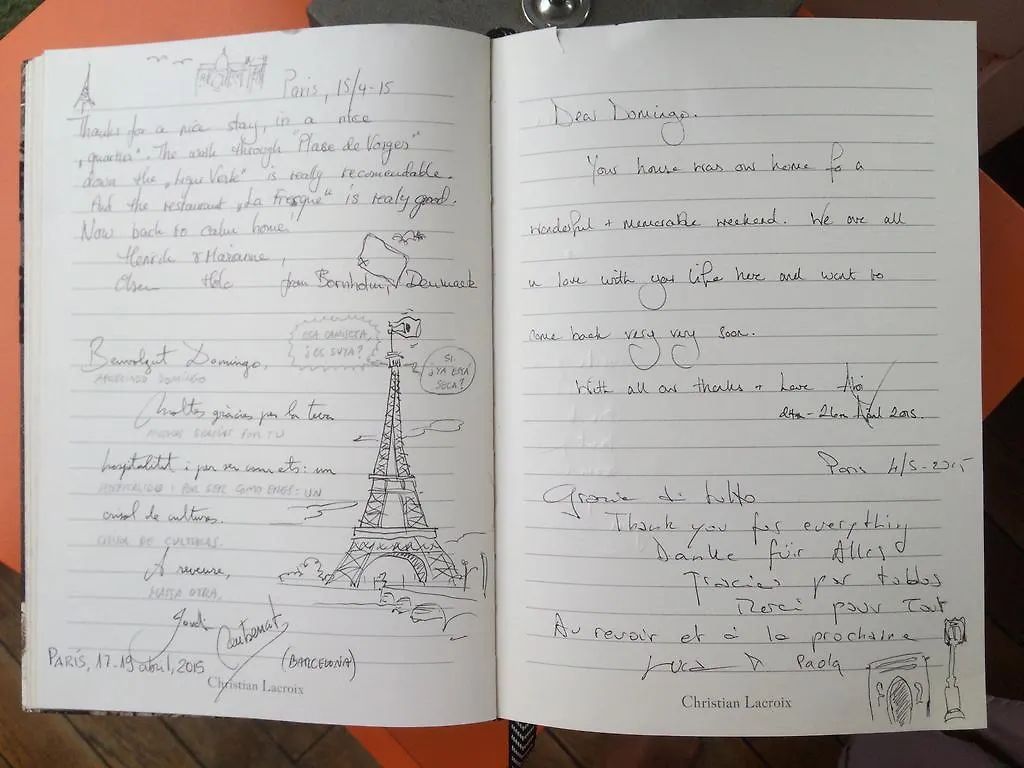 Paris, 15/4-15
Thanks for a nice stay, in a nice
„quartier". The walk through "Plase de Vorges"
down the „Ligne Verte" is really recomendable.
And the restaurant „La Fresque" is realy good.
Now back to calm home!
Henrik & Marianne,
Olsen Holc from Bornholm, Denmark
ESA CAMISETA,
¿ES SUYA?
SI.
¿YA ESTÁ
SECA?
Benvolgut Domingo,
APRECIADO DOMINGO
Moltes gràcies per la teva
MUCHAS GRACIAS POR TU
hospitalitat i per ser com ets: un
HOSPITALIDAD I POR SER COMO ERES: UN
crisol de cultures.
CRISOL DE CULTURAS.
A reveure,
HASTA OTRA,
Jordi
(BARCELONA)
PARÍS, 17-19 abril, 2015
Christian Lacroix
Dear Domingo.
Your house was our home for a
wonderful + memorable weekend. We are all
in love with your life here and want to
come back very very soon.
With all our thanks + Love
24th - 26th April 2015.
Paris 4/5-2015
Grazie di tutto
Thank you for everything
Danke für Alles
Gracias por todos
Merci pour Tout
Au revoir et à la prochaine
Luca & Paola
Christian Lacroix